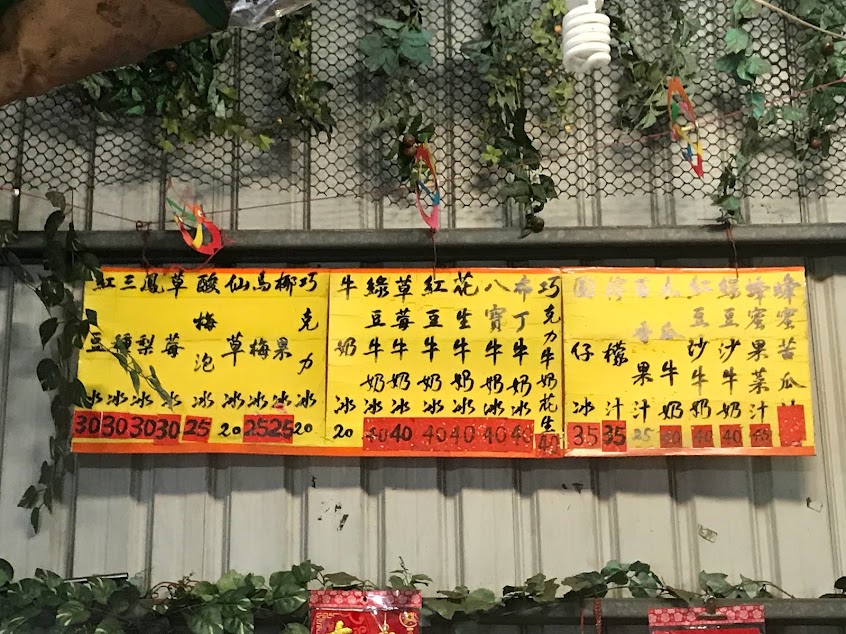 蜂蜜苦瓜
蜂蜜果菜汁
綠豆沙牛奶 40
紅豆沙牛奶 40
木瓜牛奶
百香果汁 25
檸檬汁 35
圓仔冰 35
巧克力牛奶花生 40
布丁牛奶冰 40
八寶牛奶冰 40
花生牛奶冰 40
紅豆牛奶冰 40
草莓牛奶冰 40
綠豆牛奶冰 40
牛奶冰 20
巧克力冰 20
椰果冰 25
烏梅冰 25
仙草冰 20
酸梅泡冰 25
草莓冰 30
鳳梨冰 30
三種冰 30
紅豆冰 30